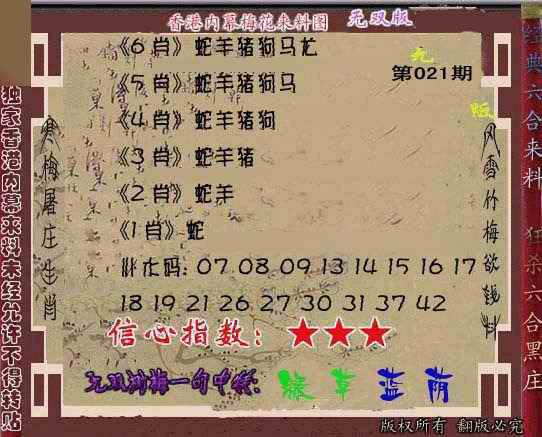 香港内幕梅花来料图 无双版
第021期
《6肖》蛇羊猪狗马龙
《5肖》蛇羊猪狗马
《4肖》蛇羊猪狗
《3肖》蛇羊猪
《2肖》蛇羊
《1肖》蛇
07 08 09 13 14 15 16 17
18 19 21 26 27 30 31 37 42
信心指数：★★★
无双浏梅一句中特：绿草蓝荫
版权所有 翻版必究
独家香港内幕来料未经允许不得转贴
寒梅屠庄生肖
风雪竹梅欲钱料
经典六合来料 狂杀六合黑庄